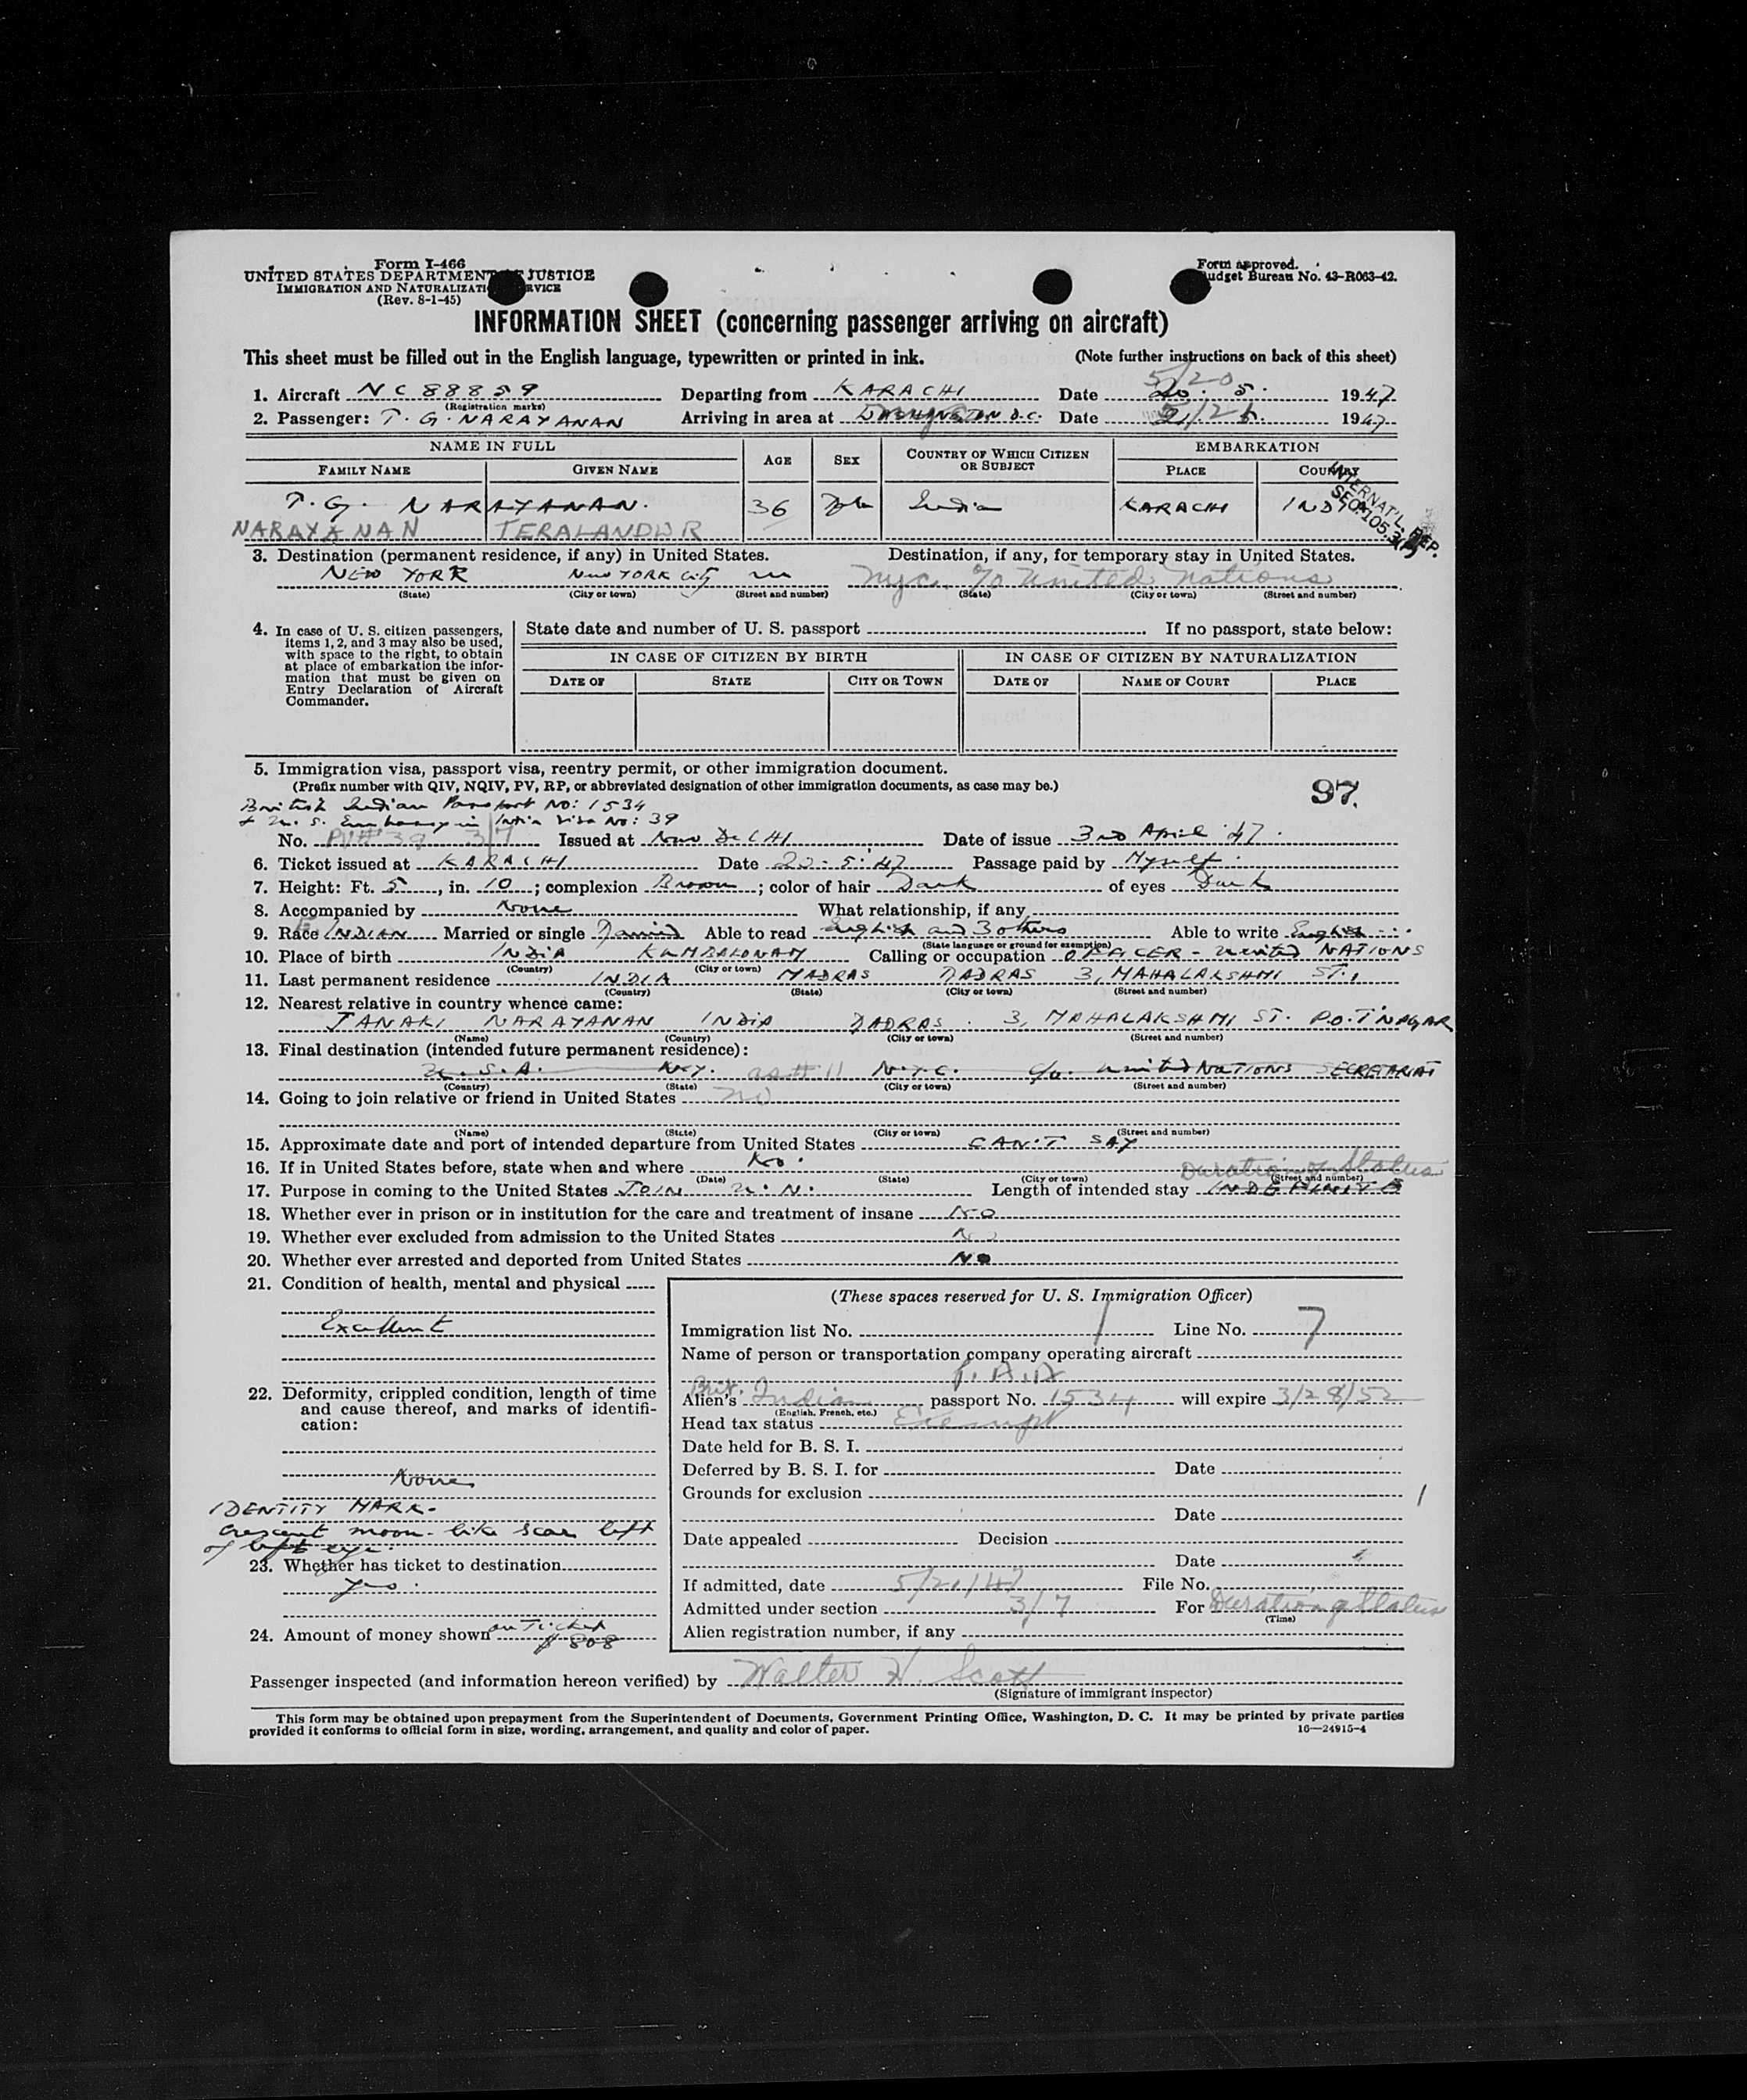 Form I-466
UNITED STATES DEPARTMENT OF JUSTICE
IMMIGRATION AND NATURALIZATION SERVICE
(Rev. 8-1-45)
Form approved.
Budget Bureau No. 43-R063-42.
INFORMATION SHEET (concerning passenger arriving on aircraft)
This sheet must be filled out in the English language, typewritten or printed in ink. (Note further instructions on back of this sheet)
5/20
1. Aircraft NC 88859 Departing from KARACHI Date 20.5. 1947
(Registration marks)
2. Passenger: T. G. NARAYANAN Arriving in area at WASHINGTON D.C. Date 21.5. 1947
NAME IN FULL AGE SEX COUNTRY OF WHICH CITIZEN OR SUBJECT EMBARKATION
FAMILY NAME GIVEN NAME PLACE COUNTRY
T. G. NARAYANAN. 36 India KARACHI INDIA
NARAYANAN TERALANDUR
INTERNAT'L. REP.
SEC. 105.3
3. Destination (permanent residence, if any) in United States. Destination, if any, for temporary stay in United States.
NEW YORK New YORK City nyc c/o United Nations
(State) (City or town) (Street and number) (State) (City or town) (Street and number)
4. In case of U. S. citizen passengers, items 1, 2, and 3 may also be used, with space to the right, to obtain at place of embarkation the information that must be given on Entry Declaration of Aircraft Commander.
State date and number of U. S. passport If no passport, state below:
IN CASE OF CITIZEN BY BIRTH IN CASE OF CITIZEN BY NATURALIZATION
DATE OF STATE CITY OR TOWN DATE OF NAME OF COURT PLACE
5. Immigration visa, passport visa, reentry permit, or other immigration document.
(Prefix number with QIV, NQIV, PV, RP, or abbreviated designation of other immigration documents, as case may be.)
97.
British Indian Passport No: 1534
+ U. S. Embassy in India Visa No: 39
No. PV# 39 3/7 Issued at New DeLHI Date of issue 3rd April '47.
6. Ticket issued at KARACHI Date 20.5.47 Passage paid by Myself.
7. Height: Ft. 5, in. 10; complexion Brown; color of hair Dark of eyes Dark
8. Accompanied by None What relationship, if any
9. Race E. INDIAN Married or single Married Able to read English and 3 others Able to write English
(State language or ground for exemption)
10. Place of birth INDIA KUMBAKONAM Calling or occupation OFFICER - United NATIONS
(Country) (City or town)
11. Last permanent residence INDIA MADRAS MADRAS 3, MAHALAKSHMI ST.,
(Country) (State) (City or town) (Street and number)
12. Nearest relative in country whence came:
JANAKI NARAYANAN INDIA MADRAS. 3, MAHALAKSHMI ST. P.O. T'NAGAR
(Name) (Country) (City or town) (Street and number)
13. Final destination (intended future permanent residence):
U.S.A. N.Y. as # 11 N.Y.C. c/o. United NATIONS SECRETARIAT
(Country) (State) (City or town) (Street and number)
14. Going to join relative or friend in United States no
(Name) (State) (City or town) (Street and number)
15. Approximate date and port of intended departure from United States CAN'T SAY
16. If in United States before, state when and where No.
(Date) (State) (City or town) (Street and number)
Duration of Status
17. Purpose in coming to the United States JOIN U.N. Length of intended stay INDEFINITE
18. Whether ever in prison or in institution for the care and treatment of insane No
19. Whether ever excluded from admission to the United States No
20. Whether ever arrested and deported from United States No
21. Condition of health, mental and physical
Excellent
22. Deformity, crippled condition, length of time and cause thereof, and marks of identification:
None
IDENTITY MARK-
Crescent moon-like scar left
of left eye.
23. Whether has ticket to destination
Yes.
24. Amount of money shown on Ticket
$ 808
(These spaces reserved for U. S. Immigration Officer)
Immigration list No. 1 Line No. 7
Name of person or transportation company operating aircraft
P.A.A
Alien's Brit. Indian passport No. 1534 will expire 3/28/52
(English, French, etc.)
Head tax status Exempt
Date held for B. S. I.
Deferred by B. S. I. for Date
Grounds for exclusion
Date
Date appealed Decision
Date
If admitted, date 5/21/47 File No.
Admitted under section 3/7 For Duration of Status
(Time)
Alien registration number, if any
Passenger inspected (and information hereon verified) by Walter H. Scott
(Signature of immigrant inspector)
This form may be obtained upon prepayment from the Superintendent of Documents, Government Printing Office, Washington, D. C. It may be printed by private parties
provided it conforms to official form in size, wording, arrangement, and quality and color of paper. 16—24915-4